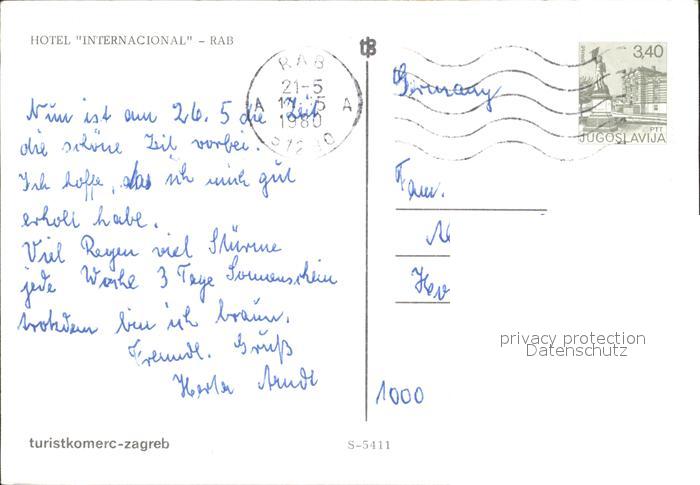 HOTEL "INTERNACIONAL" – RAB
RAB
21-5
A A
1980
Nun ist am 26. 5 die Zeit
die schöne Zeit vorbei.
Ich hoffe, das ich mich gut
erholt habe.
Viel Regen viel Stürme
jede Woche 3 Tage Sonnenschein
trotzdem bin ich braun.
Freundl. Gruß
Herta Arndt
turistkomerc-zagreb
S-5411
3,40
PTT
JUGOSLAVIJA
Germany
Fam.
1000
privacy protection
Datenschutz